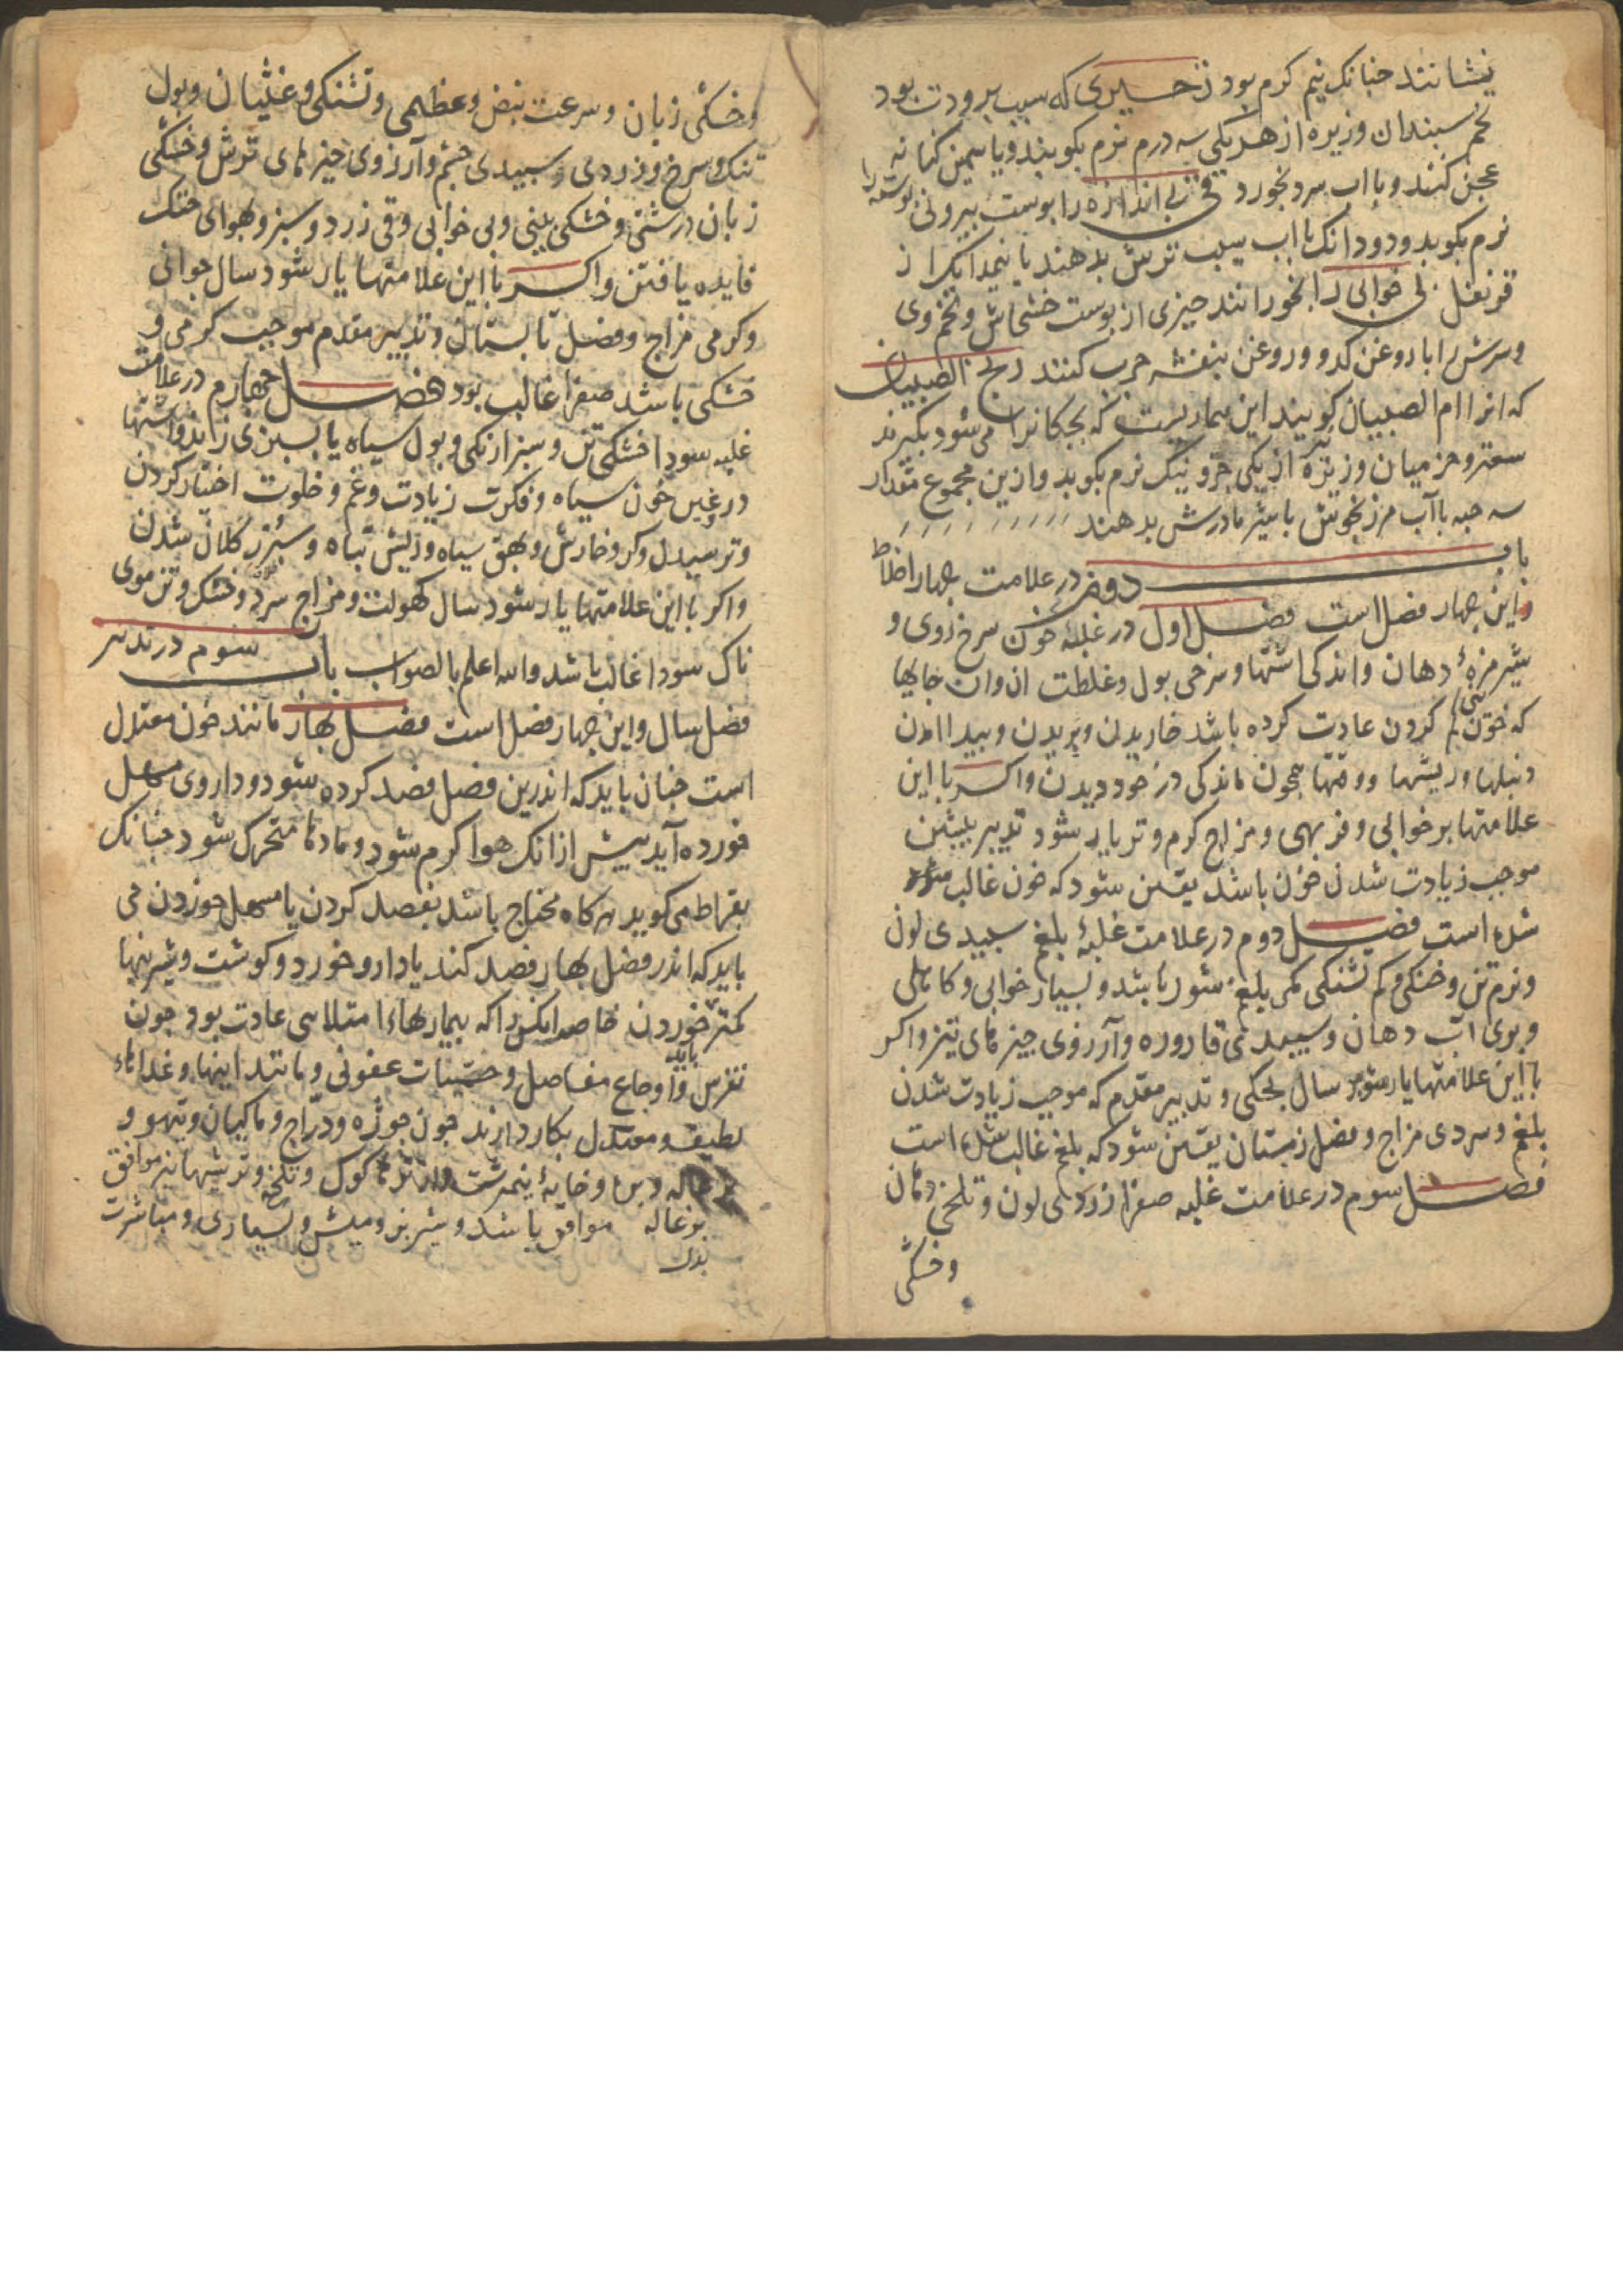 بنشانند چنانک نیم کرم بود زحیری که سبب برودت بود
تخم سبندان و زیره از هر یکی سه درم نرم بکوبند و با
عجین کنند و با اب سرد بخورد قی بی اندازه را بوست بیرونی بوسته را
نرم بکوبد و دو دانک با اب سیب ترش بدهند یا نیمدانک از
قرنفل بی خوابی را بخورانند چیزی از بوست خشخاش و تخم وی
و سرش را با روغن کدو و روغن بنفشه چرب کنند ریح الصبیان
که انرا ام الصبیان کویند این بماریست که بجکانرا می شود بکیرند
سعتر و جز میان و زیره از یکی جزو نیک نرم بکوبد و ازین مجموع مقدار
سه حبه با آب مرزنجوش با شیر مادرش بدهند
باب دوم در علامت چهار اخلاط
و این چهار فصل است فصل اول در غلبه خون سرخ روی و
شیر مزه دهان و اندکی اشتها و سرخی بول و غلظت ان و ان جایها
که خون کم کردن عادت کرده باشد خاریدن و بریدن و بیدا امدن
دنبلها و ریشها و وقتها جون ماندکی در خود دیدن و اکر با این
علامتها بر خوابی و فربهی و مزاج کرم و تر یار شود تدبیر بیشین
موجب زیادت شدن خون باشد یقین شود که خون غالب
شده است فصل دوم در علامت غلبهٔ بلغم سبیدی لون
و نرم تن و خنکی و کم تشنکی مکر بلغم شور باشد و بسیار خوابی و کاهلی
و بوی اب دهان و سبیدی قاروره و آرزوی چیزهای تیز و اکر
با این علامتها یار شود سال بجکی و تدبیر مقدم که موجب زیادت شدن
بلغم و سردی مزاج و فصل زمستان یقین شود که بلغم غالب شده است
فصل سوم در علامت غلبه صفرا زردی لون و تلخی دهان
و خشکی
و خشکی زبان و سرعت نبض و عظیمی و تشنکی و غثیان و بول
تنک و سرخ و زردی و سبیدی چشم و آرزوی چیزهای ترش و خشکی
زبان درشتی و خشکی بینی و بی خوابی و قی زرد و سبز و بهوای خنک
فایده یافتن و اکر با این علامتها یار شود سال جوانی
و کرمی مزاج و فصل تابستان و تدبیر مقدم موجب کرمی و
خشکی باشد صفرا غالب بود فصل چهارم در علامت
غلبه سودا خشکی تن و سبز ارنکی و بول سیاه یا بسبزی زند و اشتها
دروغین خون سیاه و فکرت زیادت و غم و خلوت اختیار کردن
و ترسیدن و کر و خارش و بهق سیاه و ریش تباه و سبرز کلان شدن
و اکر با این علامتها یار شود سال کهولت و مزاج سرد و خشک و تن موی
ناک سودا غالب باشد والله اعلم بالصواب باب سوم در تدبیر
فصل سال و این چهار فصل است فصل بهار مانند خون معتدل
است چنان باید که اندرین فصل فصد کرده شود و داروی مسهل
خورده آید بیش از انک هوا کرم شود و مادها متحرک شود چنانک
بقراط می کوید هر کاه محتاج باشد بفصد کردن یا مسهل خوردن می
باید که اندر فصل بهار فصد کند یا دارو خورد و کوشت و شیرینها
کمتر خوردن باید خاصه انکس را که بیماریهاء امتلاسی عادت بود جون
نقرس و اوجاع مفاصل و حمیات عفونی و مانند اینها و غذاهاء
لطیف و معتدل بکار دارند جون جوژه و دراج و ماکیان و تیهو و
بزغاله و بره و خایهٔ نیمبرشت و کوک و تلخه و ترشیها نیز موافق
بزغاله موافق باشد و شیر بز و میش و بسیاری و مباشرت
بدل